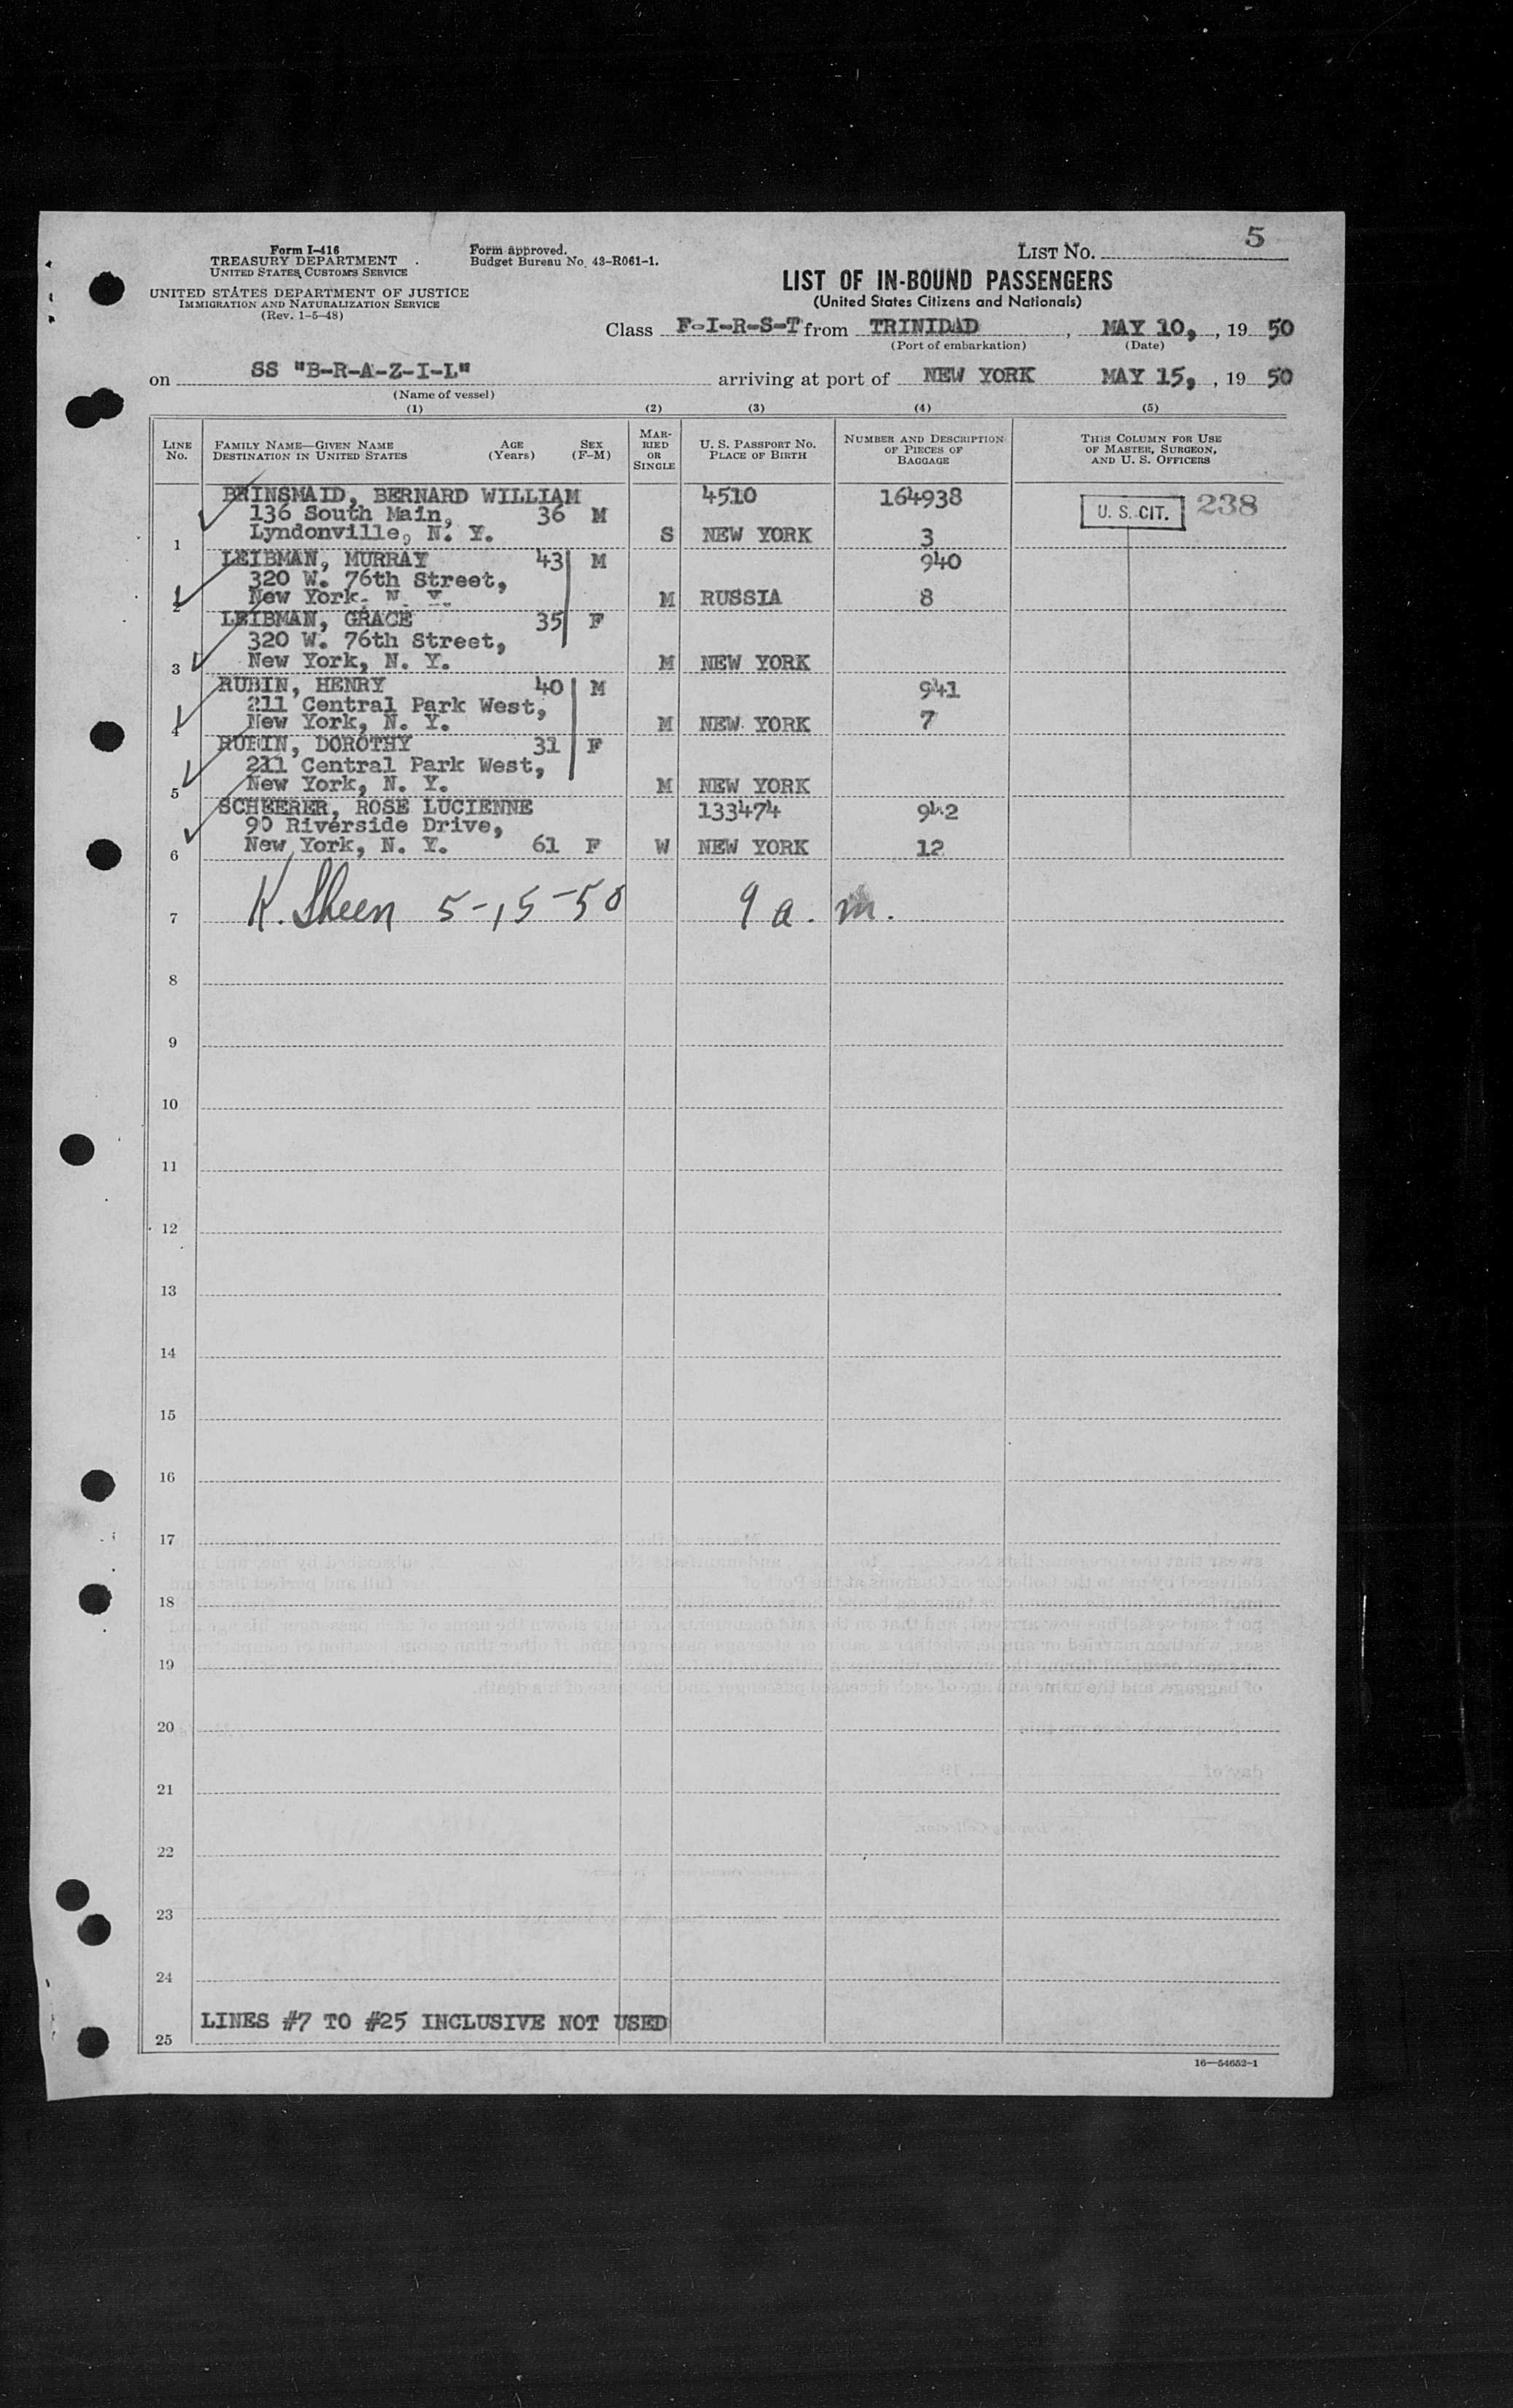 Form I-416
TREASURY DEPARTMENT
UNITED STATES CUSTOMS SERVICE
UNITED STATES DEPARTMENT OF JUSTICE
IMMIGRATION AND NATURALIZATION SERVICE
(Rev. 1-5-48)
Form approved.
Budget Bureau No. 43-R061-1.
LIST NO. 5
LIST OF IN-BOUND PASSENGERS
(United States Citizens and Nationals)
Class F-I-R-S-T from TRINIDAD, MAY 10, , 19 50
(Port of embarkation) (Date)
on SS "B-R-A-Z-I-L" arriving at port of NEW YORK MAY 15, , 19 50
(Name of vessel)
(1) (2) (3) (4) (5)
LINE No. FAMILY NAME—GIVEN NAME DESTINATION IN UNITED STATES AGE (Years) SEX (F-M) MARRIED OR SINGLE U. S. PASSPORT NO. PLACE OF BIRTH NUMBER AND DESCRIPTION OF PIECES OF BAGGAGE THIS COLUMN FOR USE OF MASTER, SURGEON, AND U. S. OFFICERS
BRINSMAID, BERNARD WILLIAM 4510 164938 U. S. CIT. 238
136 South Main, 36 M
1 Lyndonville, N. Y. S NEW YORK 3
LEIBMAN, MURRAY 43 M 940
320 W. 76th Street,
2 New York. N. Y. M RUSSIA 8
LEIBMAN, GRACE 35 F
320 W. 76th Street,
3 New York, N. Y. M NEW YORK
RUBIN, HENRY 40 M 941
211 Central Park West,
4 New York, N. Y. M NEW YORK 7
RUBIN, DOROTHY 31 F
211 Central Park West,
5 New York, N. Y. M NEW YORK
SCHEERER, ROSE LUCIENNE 133474 942
90 Riverside Drive,
6 New York, N. Y. 61 F W NEW YORK 12
7 K. Sheen 5-15-50 9 a. m.
8
9
10
11
12
13
14
15
16
17
18
19
20
21
22
23
24
LINES #7 TO #25 INCLUSIVE NOT USED
25
16—54652-1